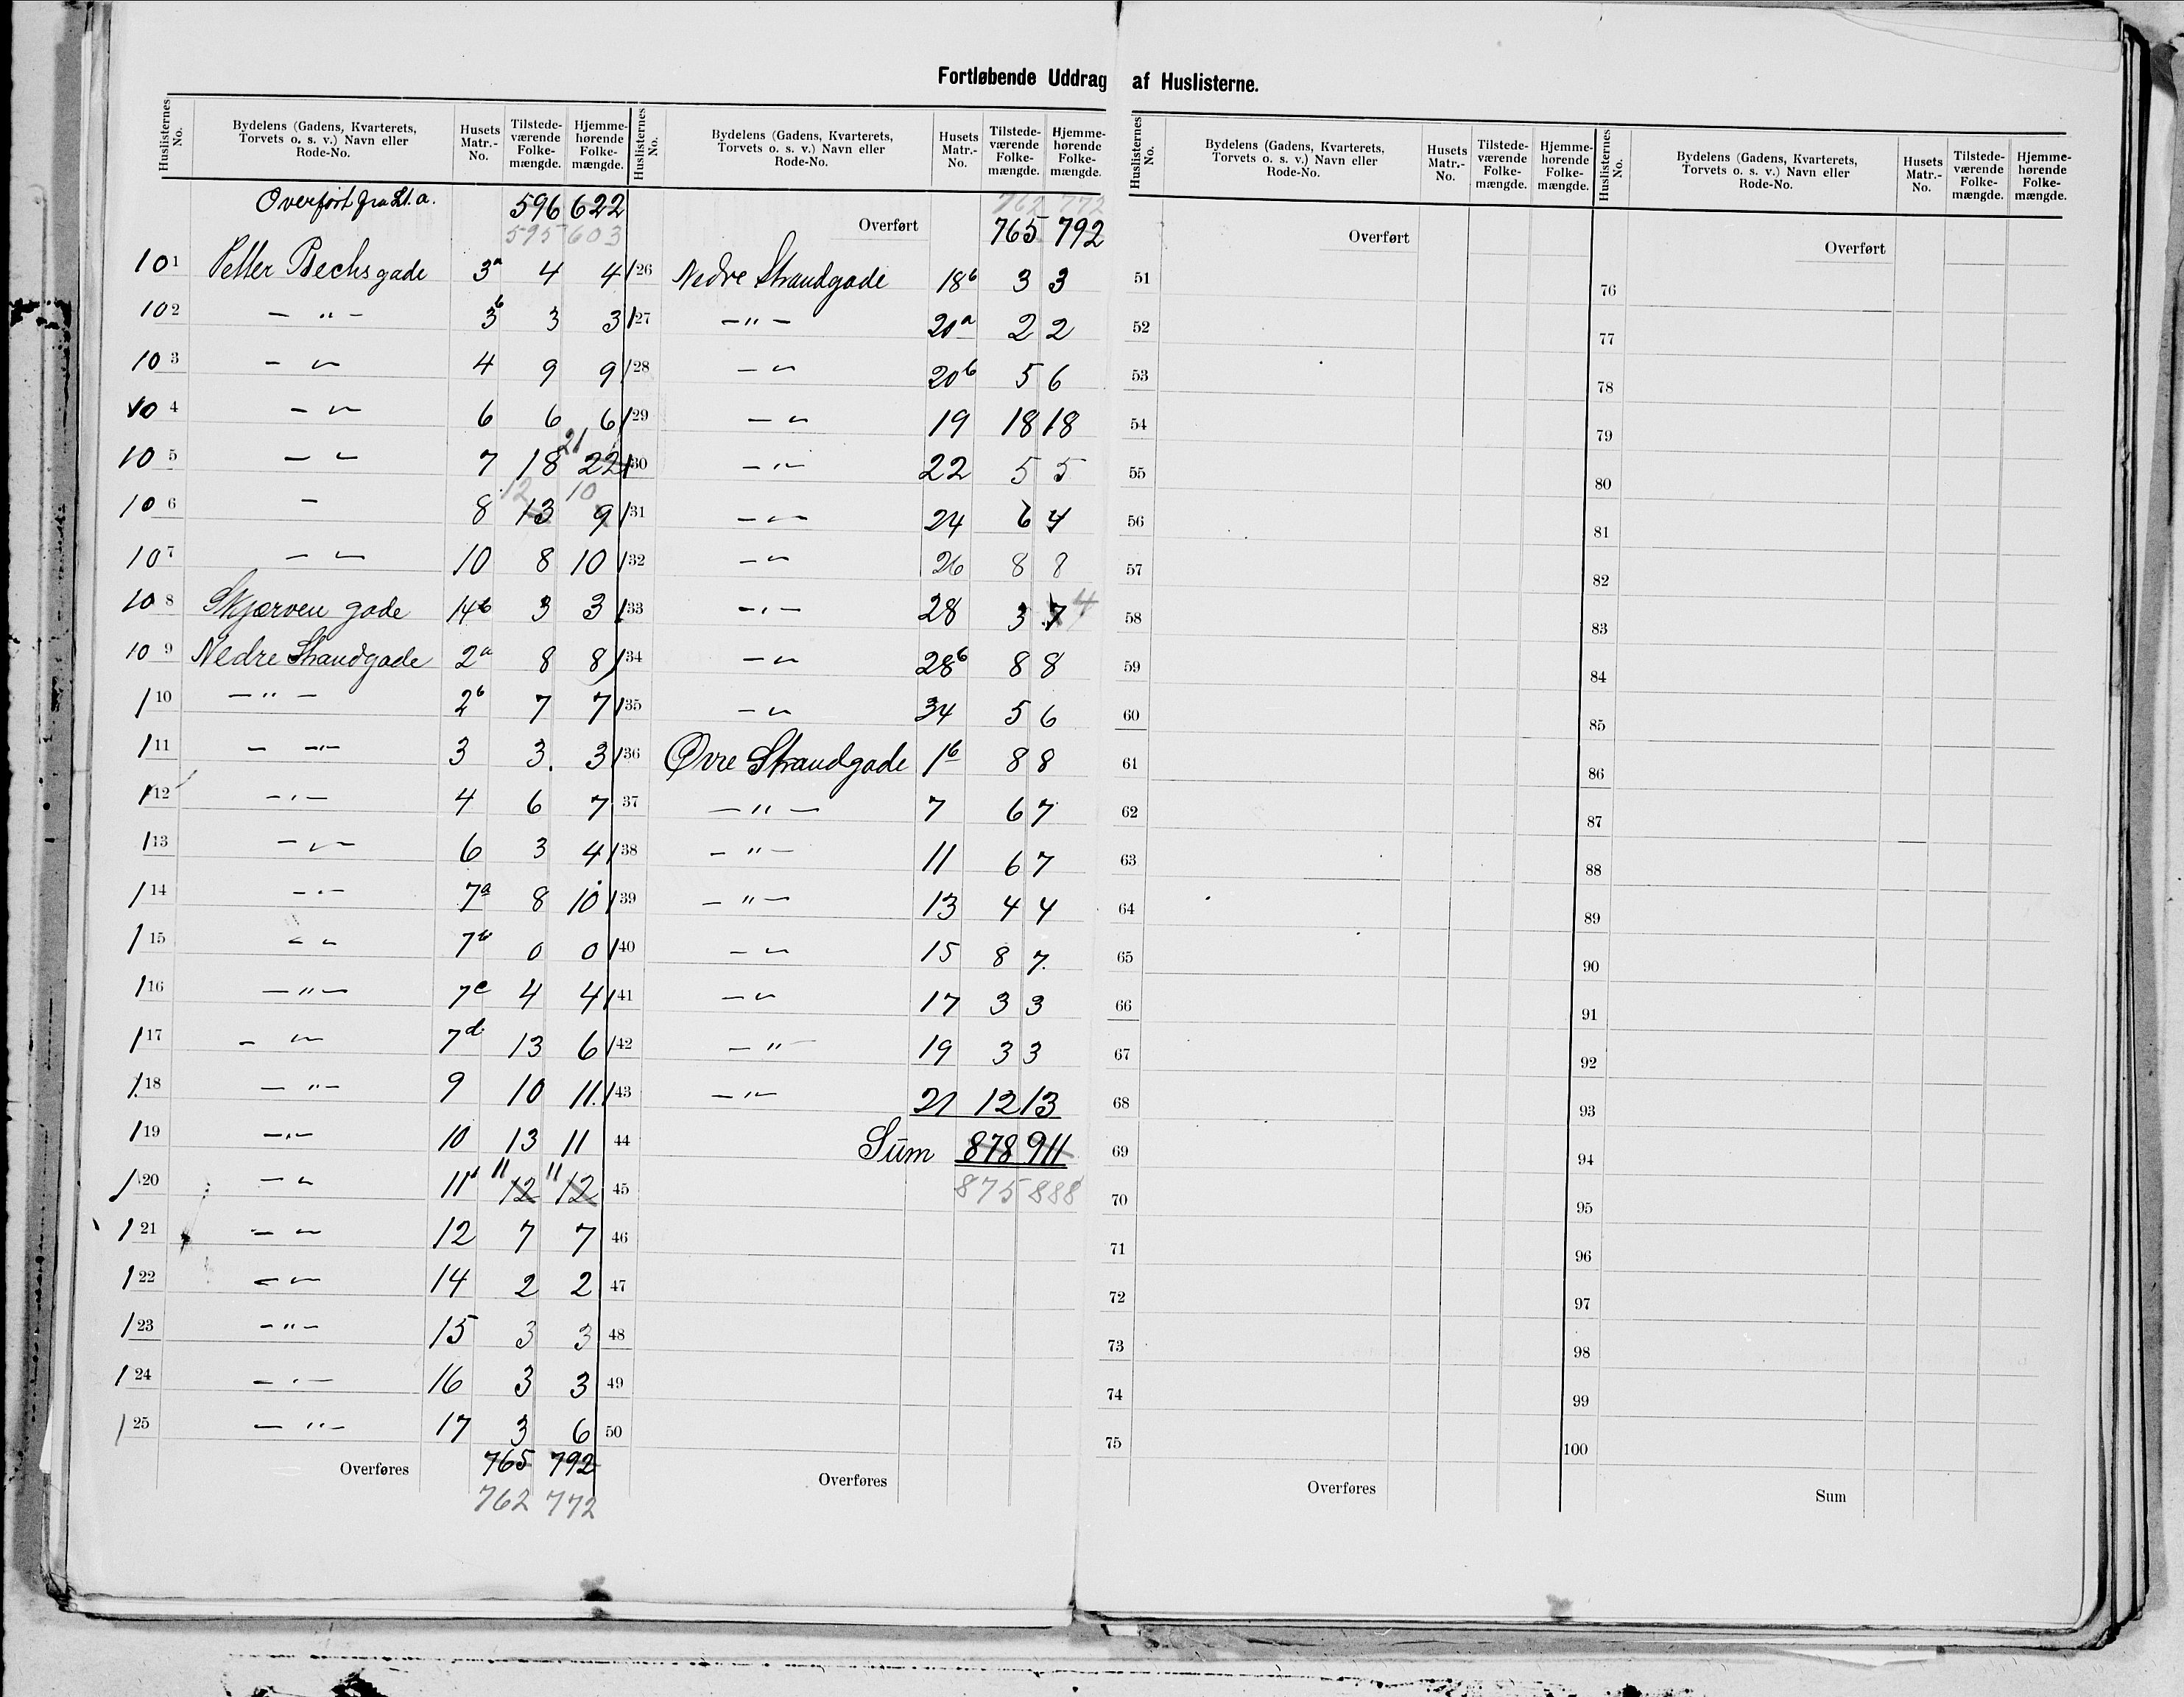 Fortløbende Uddrag af Huslisterne.
Huslisternes No. Bydelens (Gadens, Kvarterets, Torvets o. s. v.) Navn eller Rode-No. Husets Matr.-No. Tilstedeværende Folkemængde. Hjemmehørende Folkemængde.
Overført fra Lit. a. 596 622
595 603
101 Petter Bechs gade 3a 4 4
102 — " — 3b 3 3
103 — " — 4 9 9
104 — " — 6 6 6
105 — " — 7 18 21 22
106 — 8 12 13 10 9
107 — " — 10 8 10
108 Skjærven gade 14b 3 3
109 Nedre Strandgade 2a 8 8
110 — " — 2b 7 7
111 — " — 3 3 3
112 — " — 4 6 7
113 — " — 6 3 4
114 — " — 7a 8 10
115 — " — 7b 0 0
116 — " — 7c 4 4
117 — " — 7d 13 6
118 — " — 9 10 11
119 — " — 10 13 11
120 — " — 11 11 12 11 12
121 — " — 12 7 7
122 — " — 14 2 2
123 — " — 15 3 3
124 — " — 16 3 3
125 — " — 17 3 6
Overføres 765 792
762 772
Huslisternes No. Bydelens (Gadens, Kvarterets, Torvets o. s. v.) Navn eller Rode-No. Husets Matr.-No. Tilstedeværende Folkemængde. Hjemmehørende Folkemængde.
762 772
Overført 765 792
126 Nedre Strandgade 18b 3 3
127 — " — 20a 2 2
128 — " — 20b 5 6
129 — " — 19 18 18
130 — " — 22 5 5
131 — " — 24 6 4
132 — " — 26 8 8
133 — " — 28 3 7 4
134 — " — 28b 8 8
135 — " — 34 5 6
136 Øvre Strandgade 1b 8 8
37 — " — 7 6 7
138 — " — 11 6 7
139 — " — 13 4 4
140 — " — 15 8 7
141 — " — 17 3 3
142 — " — 19 3 3
143 — " — 21 12 13
44 Sum 878 911
45 875 888
46
47
48
49
50
Overføres
Huslisternes No. Bydelens (Gadens, Kvarterets, Torvets o. s. v.) Navn eller Rode-No. Husets Matr.-No. Tilstedeværende Folkemængde. Hjemmehørende Folkemængde.
Overført
51
52
53
54
55
56
57
58
59
60
61
62
63
64
65
66
67
68
69
70
71
72
73
74
75
Overføres
Huslisternes No. Bydelens (Gadens, Kvarterets, Torvets o. s. v.) Navn eller Rode-No. Husets Matr.-No. Tilstedeværende Folkemængde. Hjemmehørende Folkemængde.
Overført
76
77
78
79
80
81
82
83
84
85
86
87
88
89
90
91
92
93
94
95
96
97
98
99
100
Sum